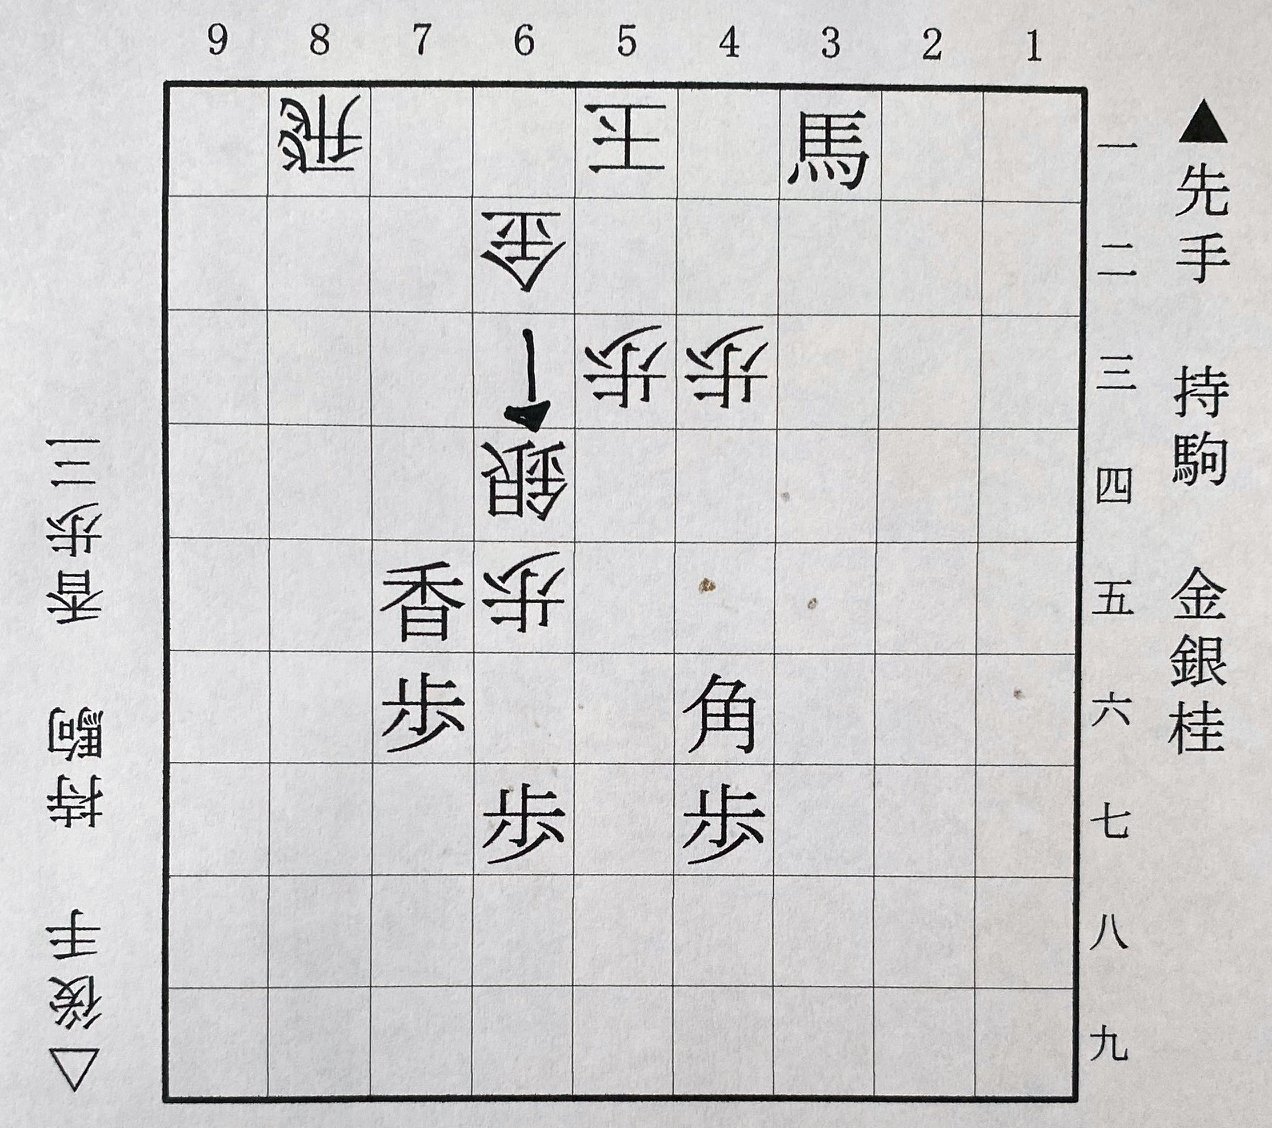 9 8 7 6 5 4 3 2 1
飛 王 馬 一
金 二
歩 歩 三
銀 四
香 歩 五
歩 角 六
歩 歩 七
八
九
▲先手 持駒 金銀桂
△後手 持駒 香歩三